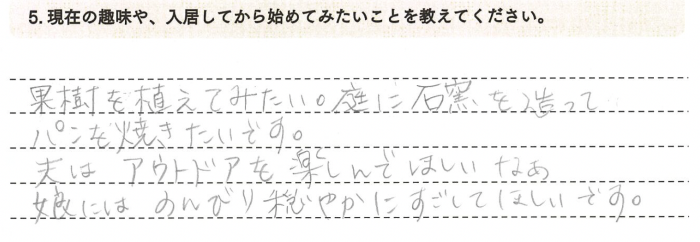 5. 現在の趣味や、入居してから始めてみたいことを教えてください。
果樹を植えてみたい。庭に石窯を造って
パンを焼きたいです。
夫は アウトドアを楽しんでほしいなぁ
娘には のんびり穏やかにすごしてほしいです。